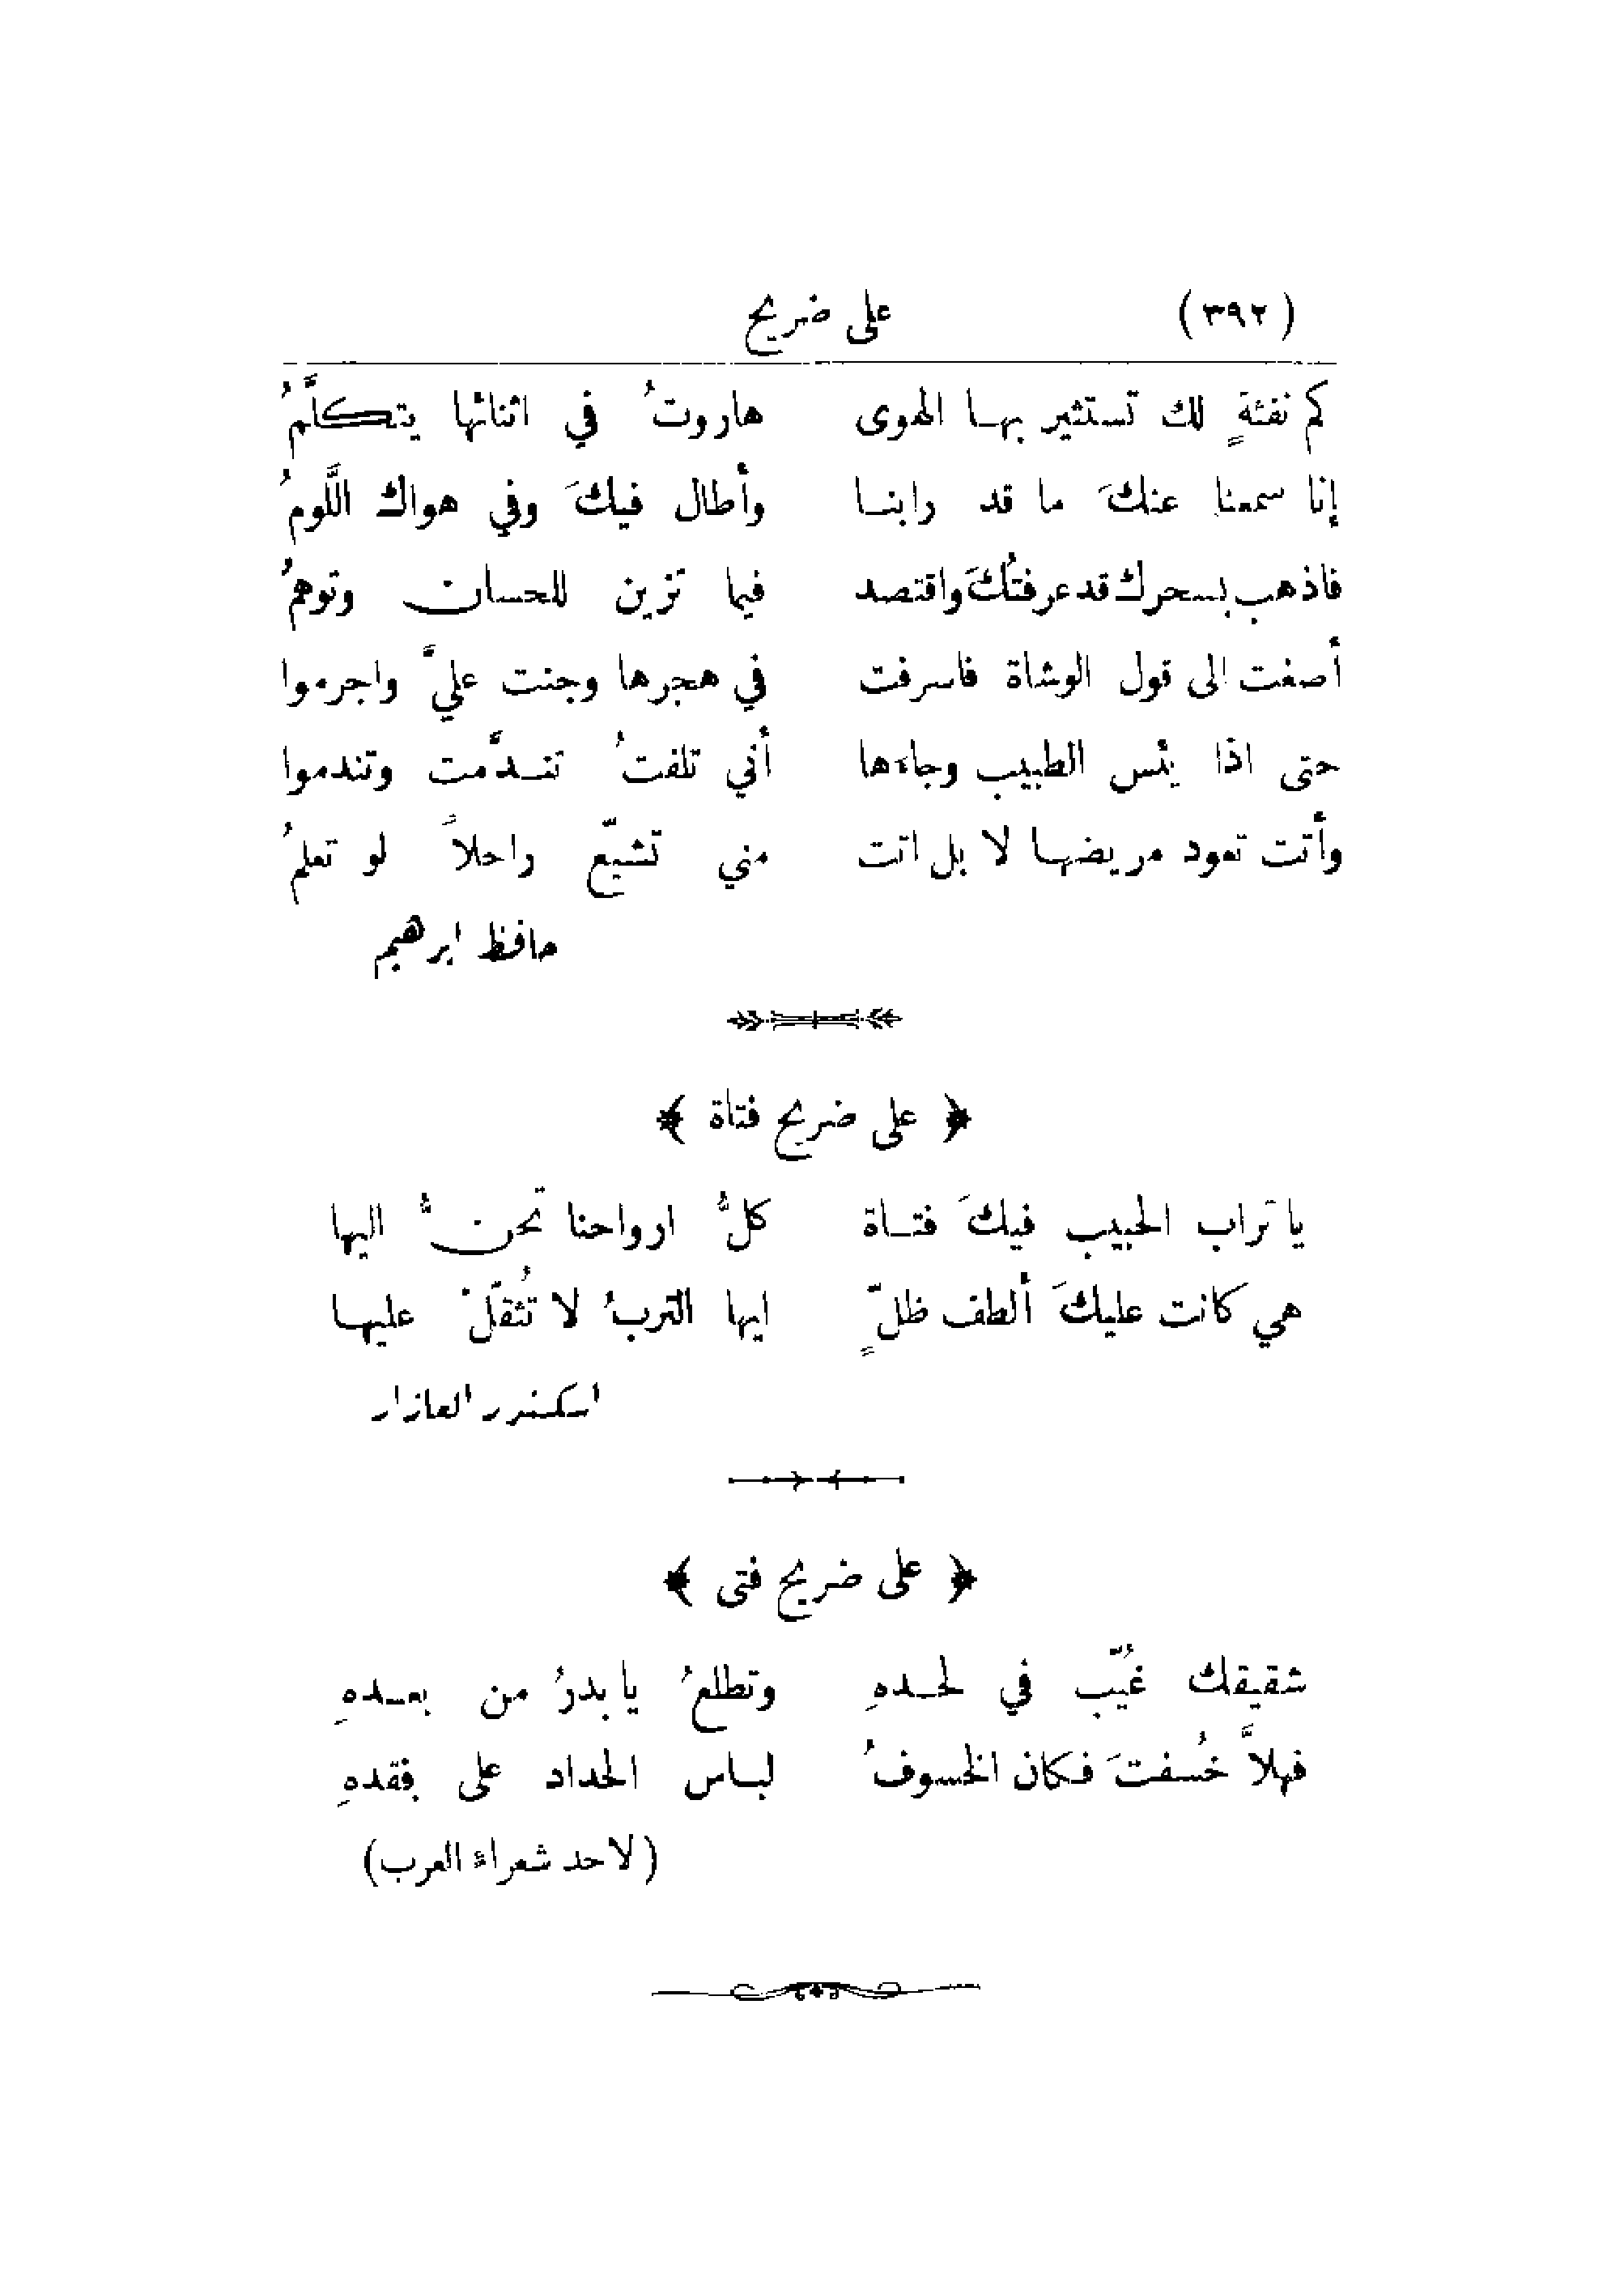 (٣٩٢) على ضريح
كم نفثةٍ لك تستثير بها الهوى هاروتُ في اثنائها يتكلَّمُ
إنا سمعنا عنكَ ما قد رابنا وأطال فيكَ وفي هواك اللَّومُ
فاذهب بسحرك قد عرفتُكَ واقتصد فيما تزين للحسان وتوهمُ
أصغت الى قول الوشاة فاسرفت في هجرها وجنت عليَّ واجرموا
حتى اذا يئس الطبيب وجاءها أني تلفتُ تندَّمت وتندموا
وأتت تعود مريضها لا بل اتت مني تشيّع راحلاً لو تعلمُ
حافظ ابرهيم
﴿ على ضريح فتاة ﴾
يا تراب الحبيب فيكَ فتاة كلُّ ارواحنا تحنُّ اليها
هي كانت عليكَ ألطف ظلٍّ ايها التربُ لا تُثقّلْ عليها
اسكندر العازار
﴿ على ضريح فتى ﴾
شقيقك غُيّب في لحدهِ وتطلعُ يا بدرُ من بعدهِ
فهلاَّ خُسفتَ فكان الخسوفُ لباس الحداد على فقدهِ
(لاحد شعراء العرب)